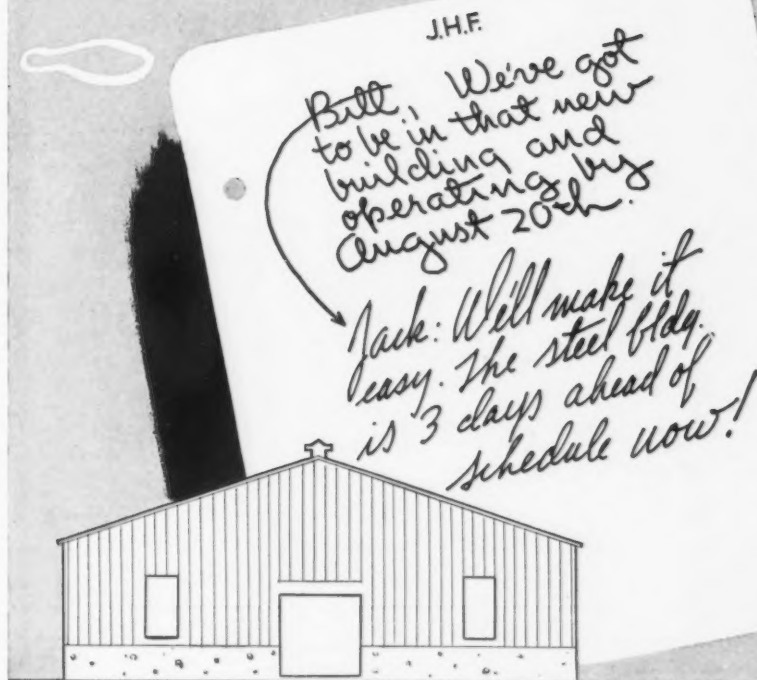 J.H.F.
Bill, We've got
to be in that new
building and
operating by
August 20th.
Jack: We'll make it
easy. The steel bldg.
is 3 days ahead of
schedule now!